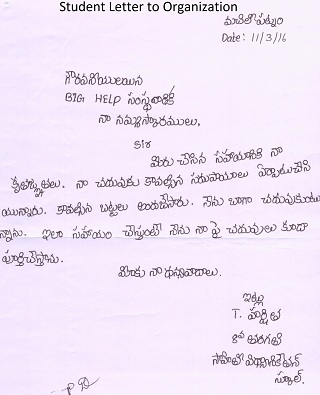 Student Letter to Organization
మచిలీపట్నం
Date: 11/3/16
గౌరవనీయులయిన
BIG HELP సంస్థవారికి
నా నమస్కారములు,
Sir
మీరు చేసిన సహాయానికి నా
కృతజ్ఞతలు. నా చదువుకు కావల్సిన సదుపాయాలు ఏర్పాటుచేసి
యున్నారు. కావల్సిన బట్టలు అందుచేసారు. నేను బాగా చదువుకుంటు
న్నాను. ఇలా సహాయం చేస్తుంటే నేను నా పై చదువులు కూడా
పూర్తిచేస్తాను.
మీకు నా ధన్యవాదాలు.
ఇట్లు
T. హర్షిత
8వ తరగతి
సాహితి విద్యానికేతన్
స్కూల్.